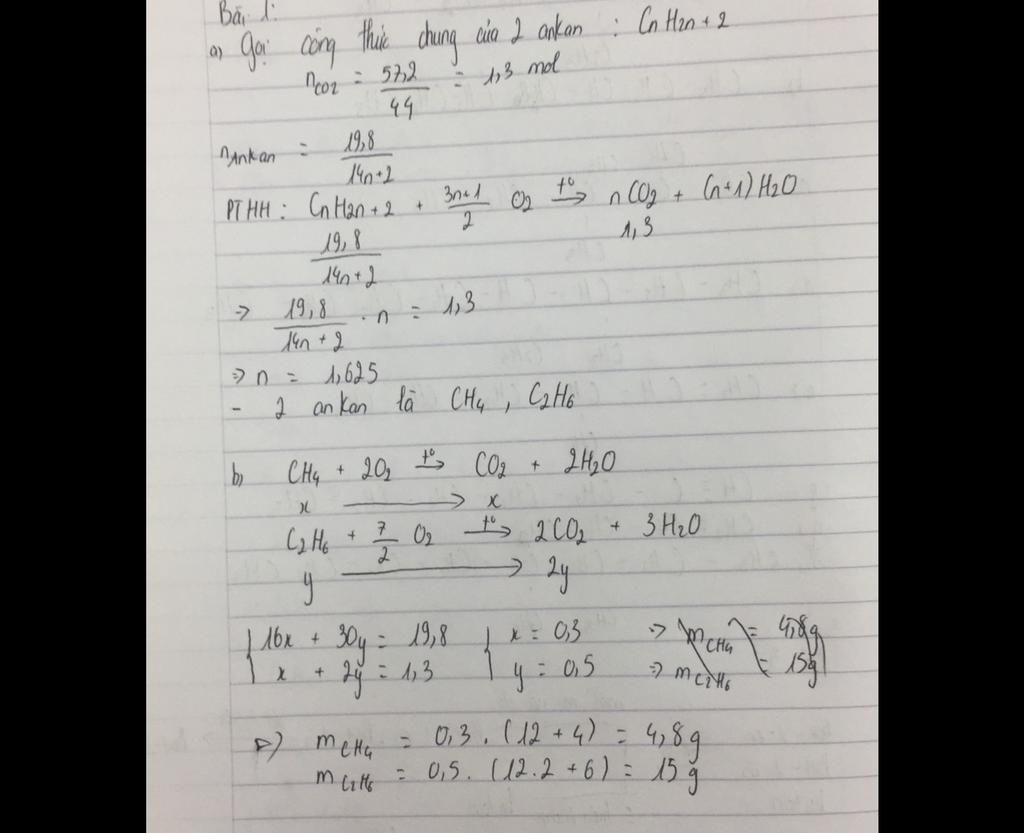 Bài 1:
a) Gọi công thức chung của 2 ankan : CnH2n+2
nCO2 = 57,2/44 = 1,3 mol
nAnkan = 19,8/14n+2
PTHH : CnH2n+2 + 3n+1/2 O2 t°→ nCO2 + (n+1) H2O
19,8/14n+2 1,3
=> 19,8/14n+2 . n = 1,3
=> n = 1,625
- 2 ankan là CH4, C2H6
b) CH4 + 2O2 t°→ CO2 + 2H2O
x → x
C2H6 + 7/2 O2 t°→ 2CO2 + 3H2O
y → 2y
{ 16x + 30y = 19,8 { x = 0,3 => mCH4 = 4,8g
x + 2y = 1,3 y = 0,5 => mC2H6 = 15g
=> mCH4 = 0,3 . (12 + 4) = 4,8g
mC2H6 = 0,5 . (12.2 + 6) = 15g